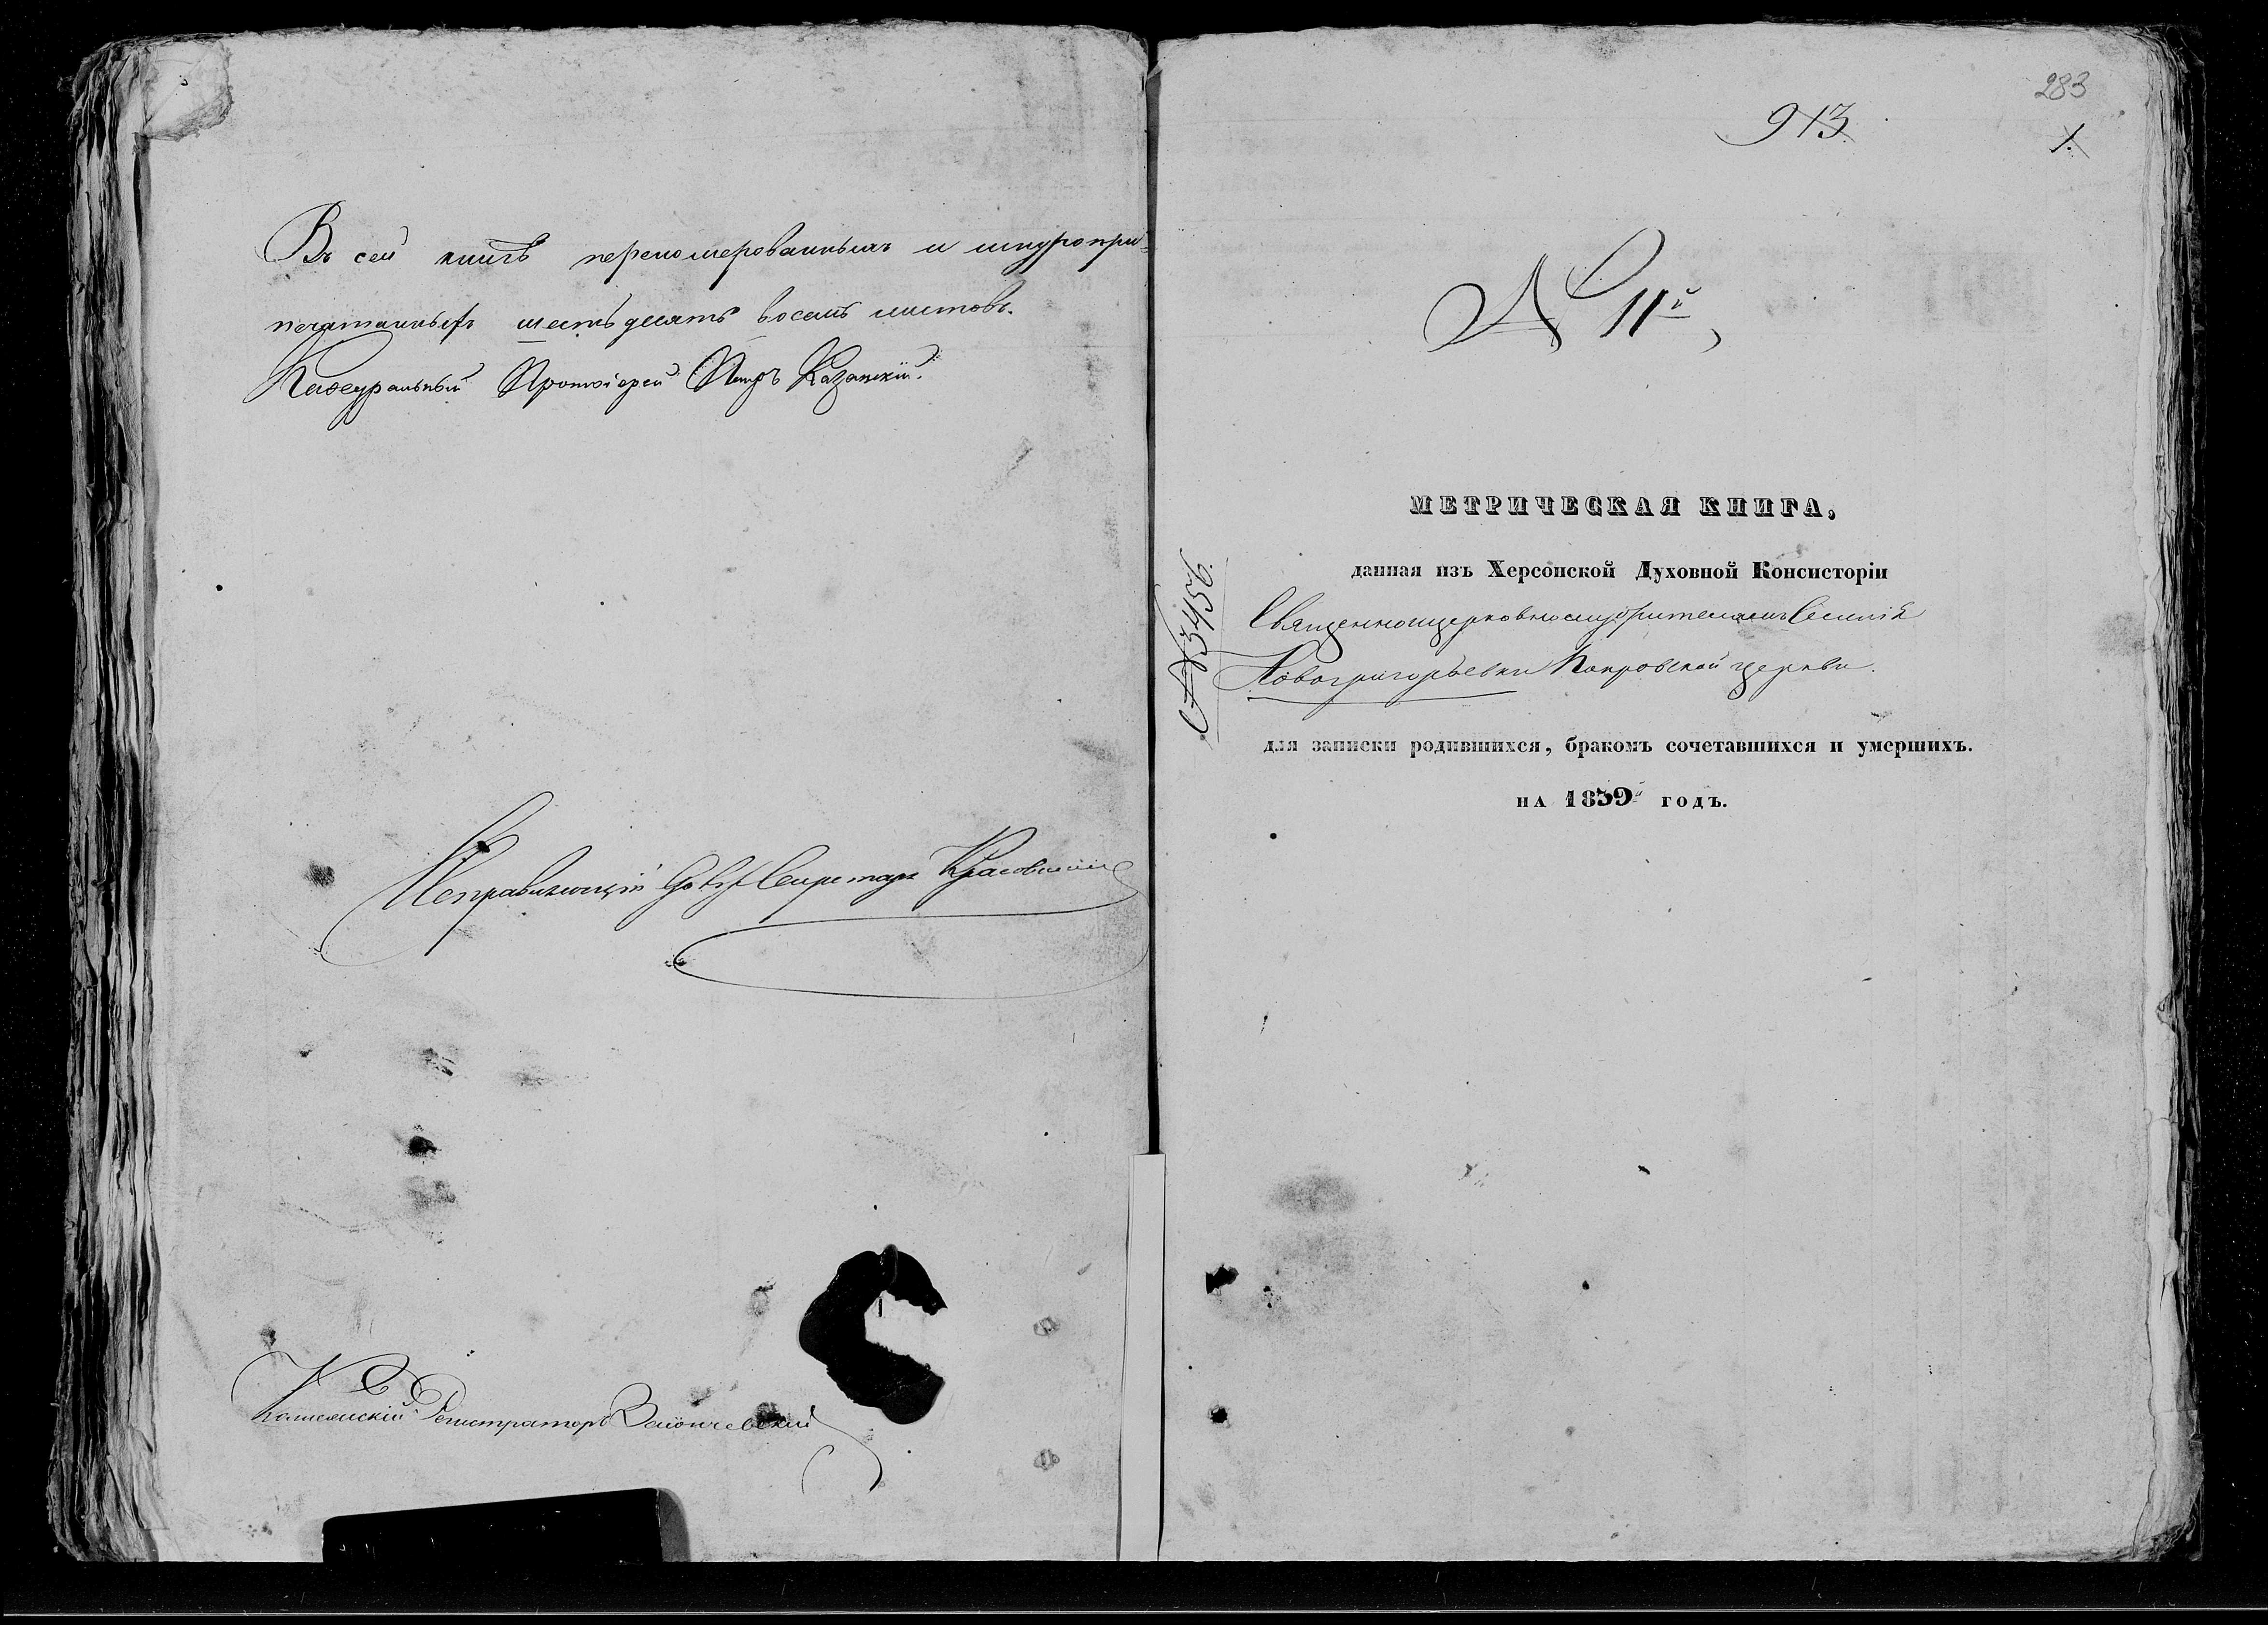 Въ сей книгѣ перенумерованныхъ и шнуропри-
печатанныхъ шестьдесятъ восемь листовъ.
Каѳедральный Протоіерей Петръ Казанскій.
Исправляющій Секретаря Красовскій
Коллежскій Регистраторъ Заіончевскій
283
913.
1.
№ 11й
МЕТРИЧЕСКАЯ КНИГА,
данная изъ Херсонской Духовной Консисторіи
Священноцерковнослужителямъ Селенія
Новогригорьевки Покровской церкви.
№ 3456.
для записки родившихся, бракомъ сочетавшихся и умершихъ.
НА 1859й ГОДЪ.